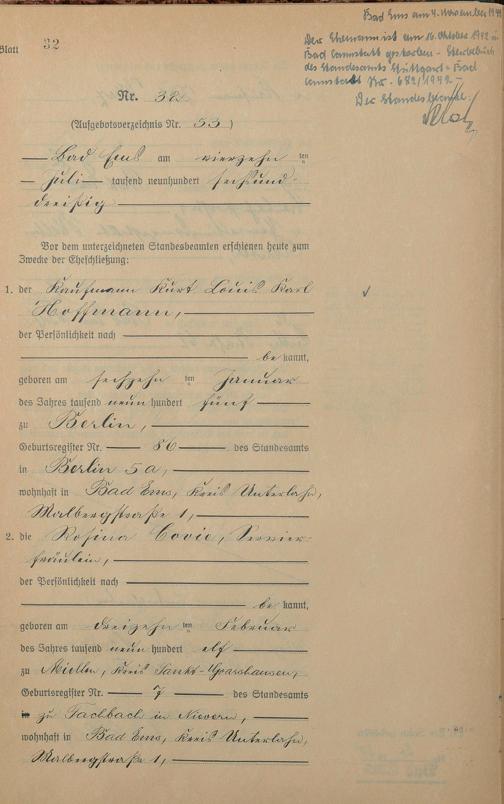 Blatt 32
Bad Ems am 4. November 19
Der Ehemann ist am 16. Oktober 1942 in
Bad Cannstatt gestorben - Sterbebuch
des Standesamts Stuttgart-Bad
Cannstatt Nr. 682/1942 -
Der Standesbeamte.
Nr. 32
(Aufgebotsverzeichnis Nr. 33)
Bad Ems am vierzehn ten
Juli tausend neunhundert sechsund-
dreißig
Vor dem unterzeichneten Standesbeamten erschienen heute zum
Zwecke der Eheschließung:
1. der Kaufmann Kurt Louis Karl
Hoffmann,
der Persönlichkeit nach
be kannt,
geboren am sechzehn ten Januar
des Jahres tausend neun hundert fünf
zu Berlin,
Geburtsregister Nr. 86 des Standesamts
in Berlin 5a,
wohnhaft in Bad Ems, Kreis Unterlahn,
Malbergstraße 1,
2. die Rosina Covic, Servier-
fräulein,
der Persönlichkeit nach
be kannt,
geboren am dreizehn ten Februar
des Jahres tausend neun hundert elf
zu Miellen, Kreis Sankt-Goarshausen,
Geburtsregister Nr. 7 des Standesamts
zu Fachbach in Nievern,
wohnhaft in Bad Ems, Kreis Unterlahn,
Malbergstraße 1,